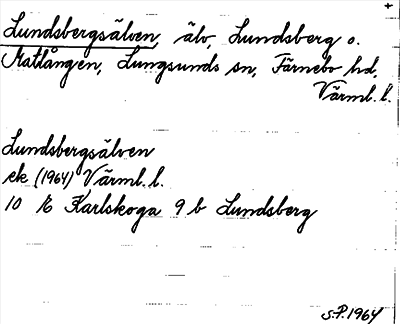 Lundsbergsälven, älv, Lundsberg o.
Matlången, Lungsunds sn, Färnebo hd,
Värml. l.
Lundsbergsälven
ek (1964) Värml. l.
10 E Karlskoga 9 b Lundsberg
S.P. 1964